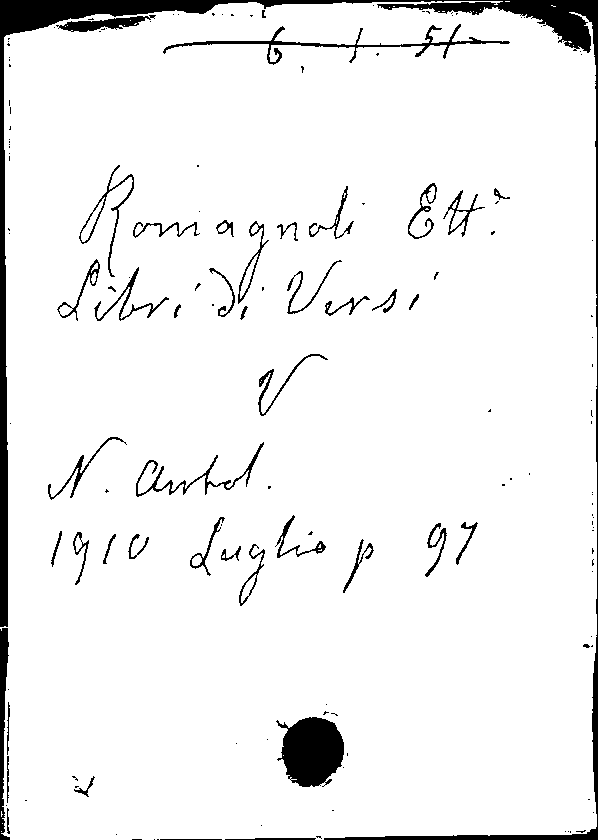 6. 1. 51
Romagnoli Ett.e
Libri di Versi
V
N. Antol.
1910 Luglio p 97